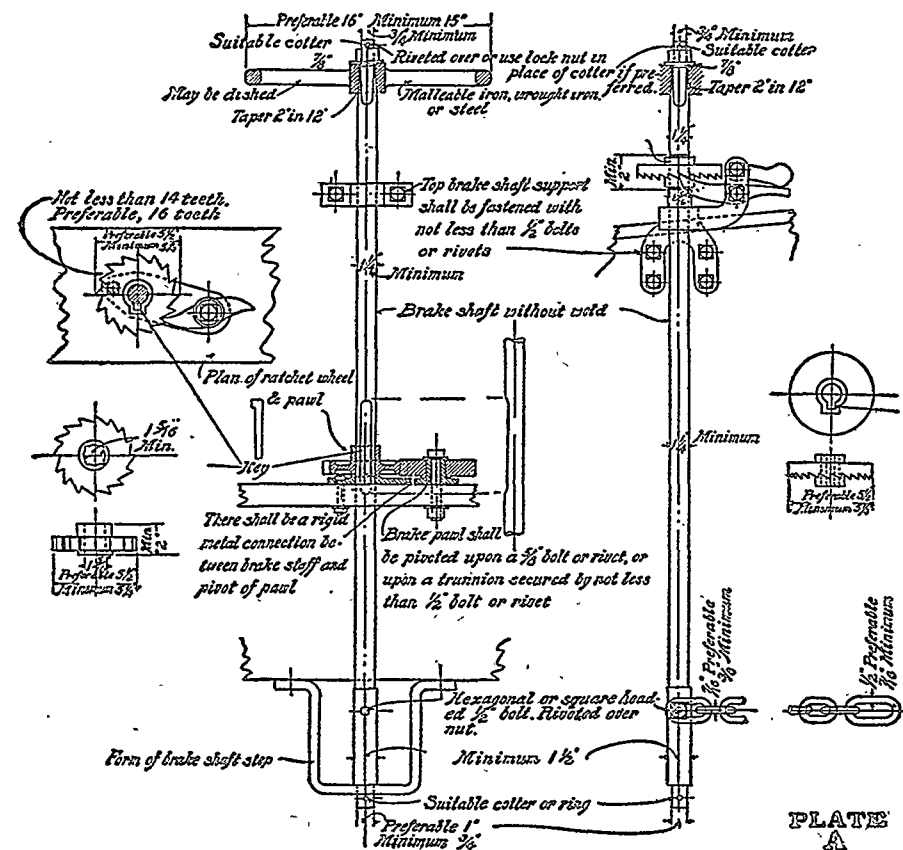 Preferable 16" Minimum 15"
3/4 Minimum
Suitable cotter
7/8"
Riveted over or use lock nut in
place of cotter if pre-
ferred.
May be dished
Malleable iron, wrought iron,
or steel
Taper 2" in 12"
3/4" Minimum
Suitable cotter
7/8"
Taper 2" in 12"
1 1/4"
Min.
2"
Not less than 14 teeth.
Preferable, 16 teeth
Preferable 5 1/2"
Minimum 5 1/4"
Top brake shaft support
shall be fastened with
not less than 1/2" bolts
or rivets
1 1/4"
Minimum
Brake shaft without weld
Plan of ratchet wheel
& pawl
Key
1 5/16"
Min.
Min.
2"
Preferable 5 1/2"
Minimum 5 1/4"
1 1/4"
Minimum
Preferable 5 1/2"
Minimum 5 1/4"
There shall be a rigid
metal connection be-
tween brake staff and
pivot of pawl
Brake pawl shall
be pivoted upon a 5/8 bolt or rivet, or
upon a trunnion secured by not less
than 1/2" bolt or rivet
7/16" Preferable
3/8" Minimum
1/2" Preferable
7/16" Minimum
Hexagonal or square head-
ed 1/2" bolt. Riveted over
nut.
Form of brake shaft step
Minimum 1 1/2"
Suitable cotter or ring
Preferable 1"
Minimum 3/4"
PLATE
A